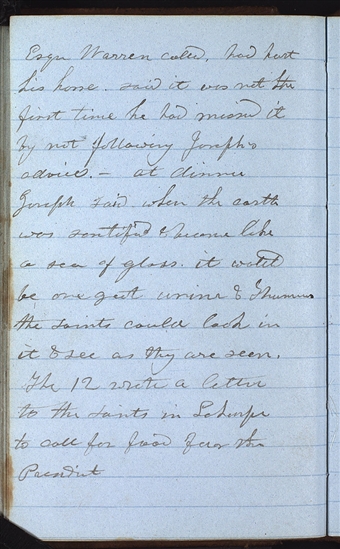 Esqr Warren called, had hurt
his horse. said it was not the
first time he had missed it
by not following Joseph's
advice. - at dinner
Joseph said when the earth
was sanctifid & became like
a sea of glass. it would
be one great urim & Thummim
the saints could look in
it & see as they are seen.
The 12 wrote a letter
to the saints in
to call for food for the
President